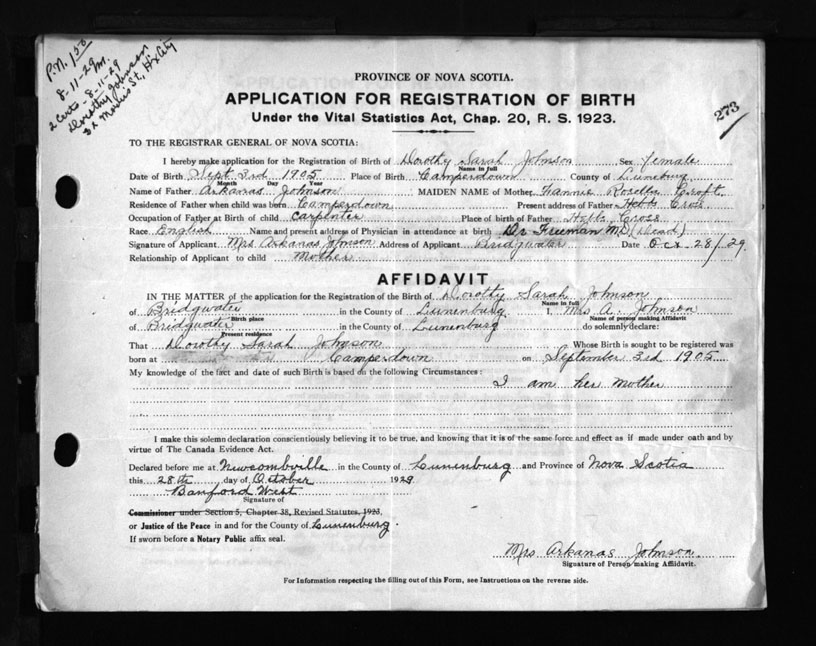 P.N. 1.50
8-11-29 M.
2 Certs. 8-11-29
Dorothy Johnson
Morris St, Hx City
273
PROVINCE OF NOVA SCOTIA.
APPLICATION FOR REGISTRATION OF BIRTH
Under the Vital Statistics Act, Chap. 20, R. S. 1923.
TO THE REGISTRAR GENERAL OF NOVA SCOTIA:
I hereby make application for the Registration of Birth of Dorothy Sarah Johnson Sex female
Name in full
Date of Birth Sept 3rd 1905 Place of Birth Camperdown County of Lunenburg
Month Day Year
Name of Father Arkanas Johnson MAIDEN NAME of Mother Fannie Rosella Croft
Residence of Father when child was born Camperdown Present address of Father Hebbs Cross
Occupation of Father at Birth of child carpenter Place of birth of Father Hebbs Cross
Race English Name and present address of Physician in attendance at birth Dr Freeman MD (Dead)
Signature of Applicant Mrs Arkanas Johnson Address of Applicant Bridgwater Date Oct. 28/29.
Relationship of Applicant to child Mother
AFFIDAVIT
IN THE MATTER of the application for the Registration of the Birth of Dorothy Sarah Johnson
Name in full
of Bridgwater in the County of Lunenburg. I, Mrs A. Johnson
Birth place Name of person making Affidavit
of Bridgwater in the County of Lunenburg do solemnly declare:
Present residence
That Dorothy Sarah Johnson Whose Birth is sought to be registered was
born at Camperdown on September 3rd 1905
My knowledge of the fact and date of such Birth is based on the following Circumstances:
I am her mother
I make this solemn declaration conscientiously believing it to be true, and knowing that it is of the same force and effect as if made under oath and by
virtue of The Canada Evidence Act.
Declared before me at Newcombville in the County of Lunenburg and Province of Nova Scotia
this 28th day of October 1929
Banford West
Signature of
Commissioner under Section 5, Chapter 38, Revised Statutes, 1923,
or Justice of the Peace in and for the County of Lunenburg.
If sworn before a Notary Public affix seal.
Mrs Arkanas Johnson
Signature of Person making Affidavit.
For Information respecting the filling out of this Form, see Instructions on the reverse side.